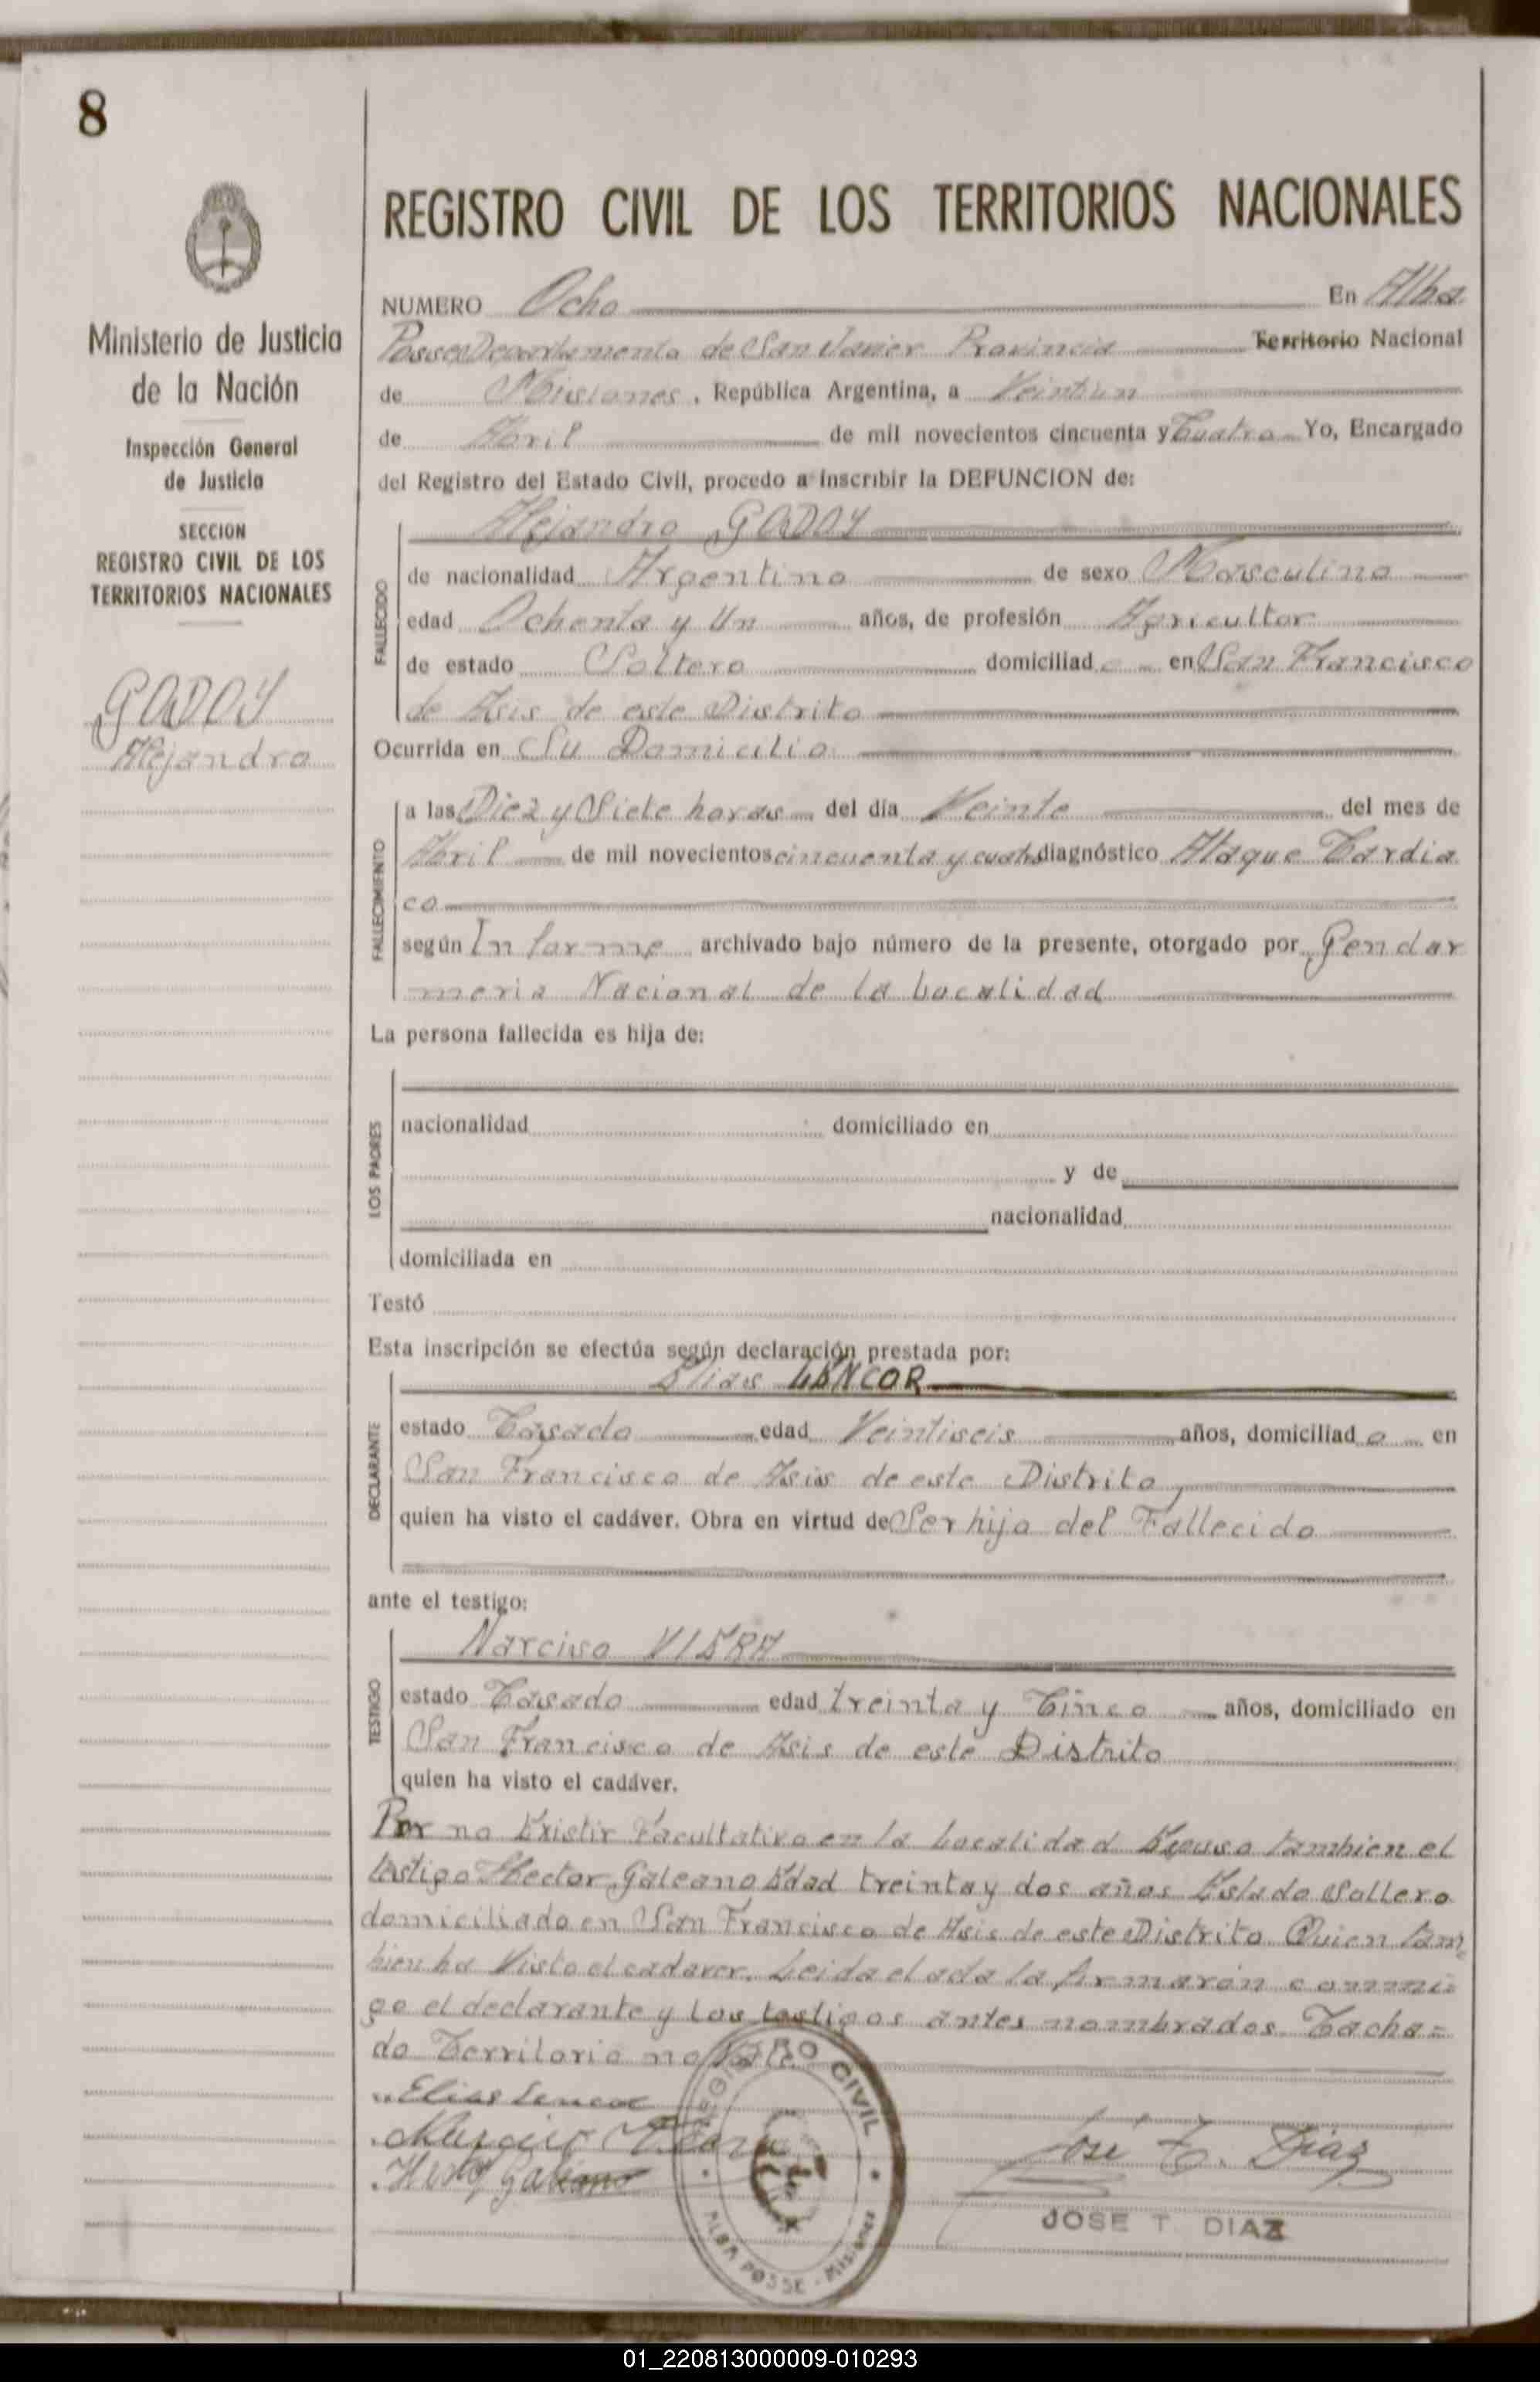 8
Ministerio de Justicia
de la Nación
Inspección General
de Justicia
SECCION
REGISTRO CIVIL DE LOS
TERRITORIOS NACIONALES
GODOY
Alejandro
REGISTRO CIVIL DE LOS TERRITORIOS NACIONALES
NUMERO Ocho En Alba
Posse, Departamento de San Javier Provincia Territorio Nacional
de Misiones, República Argentina, a Veintiun
de Abril de mil novecientos cincuenta y Cuatro Yo, Encargado
del Registro del Estado Civil, procedo a inscribir la DEFUNCION de:
Alejandro GODOY
FALLECIDO
de nacionalidad Argentino de sexo Masculino
edad Ochenta y Un años, de profesión Agricultor
de estado Soltero domiciliado en San Francisco
de Asis de este Distrito
Ocurrida en Su Domicilio
FALLECIMIENTO
a las Diez y Siete horas del día Veinte del mes de
Abril de mil novecientos cincuenta y cuatro diagnóstico Ataque Cardia
co
según Informe archivado bajo número de la presente, otorgado por Gendar
meria Nacional de la Localidad
La persona fallecida es hija de:
LOS PADRES
nacionalidad domiciliado en
y de
nacionalidad
domiciliada en
Testó
Esta inscripción se efectúa según declaración prestada por:
Elias LENCOR
DECLARANTE
estado Casado edad Veintiseis años, domiciliado en
San Francisco de Asis de este Distrito
quien ha visto el cadáver. Obra en virtud de Ser hijo del Fallecido
ante el testigo:
Narciso VIERA
TESTIGO
estado Casado edad treinta y Cinco años, domiciliado en
San Francisco de Asis de este Distrito
quien ha visto el cadáver.
Por no Existir Facultativo en la Localidad Expuso tambien el
testigo Hector Galeano Edad treinta y dos años Estado Soltero
domiciliado en San Francisco de Asis de este Distrito Quien tam
bien ha Visto el cadaver. Leida el acta la firmaron conmi=
go el declarante y los testigos antes nombrados. Tacha=
do Territorio no Vale
Elias Lencor
Narciso Viera
Hector Galeano
José T. Diaz
JOSE T. DIAZ
REGISTRO CIVIL
ALBA POSSE - Misiones
01_220813000009-010293